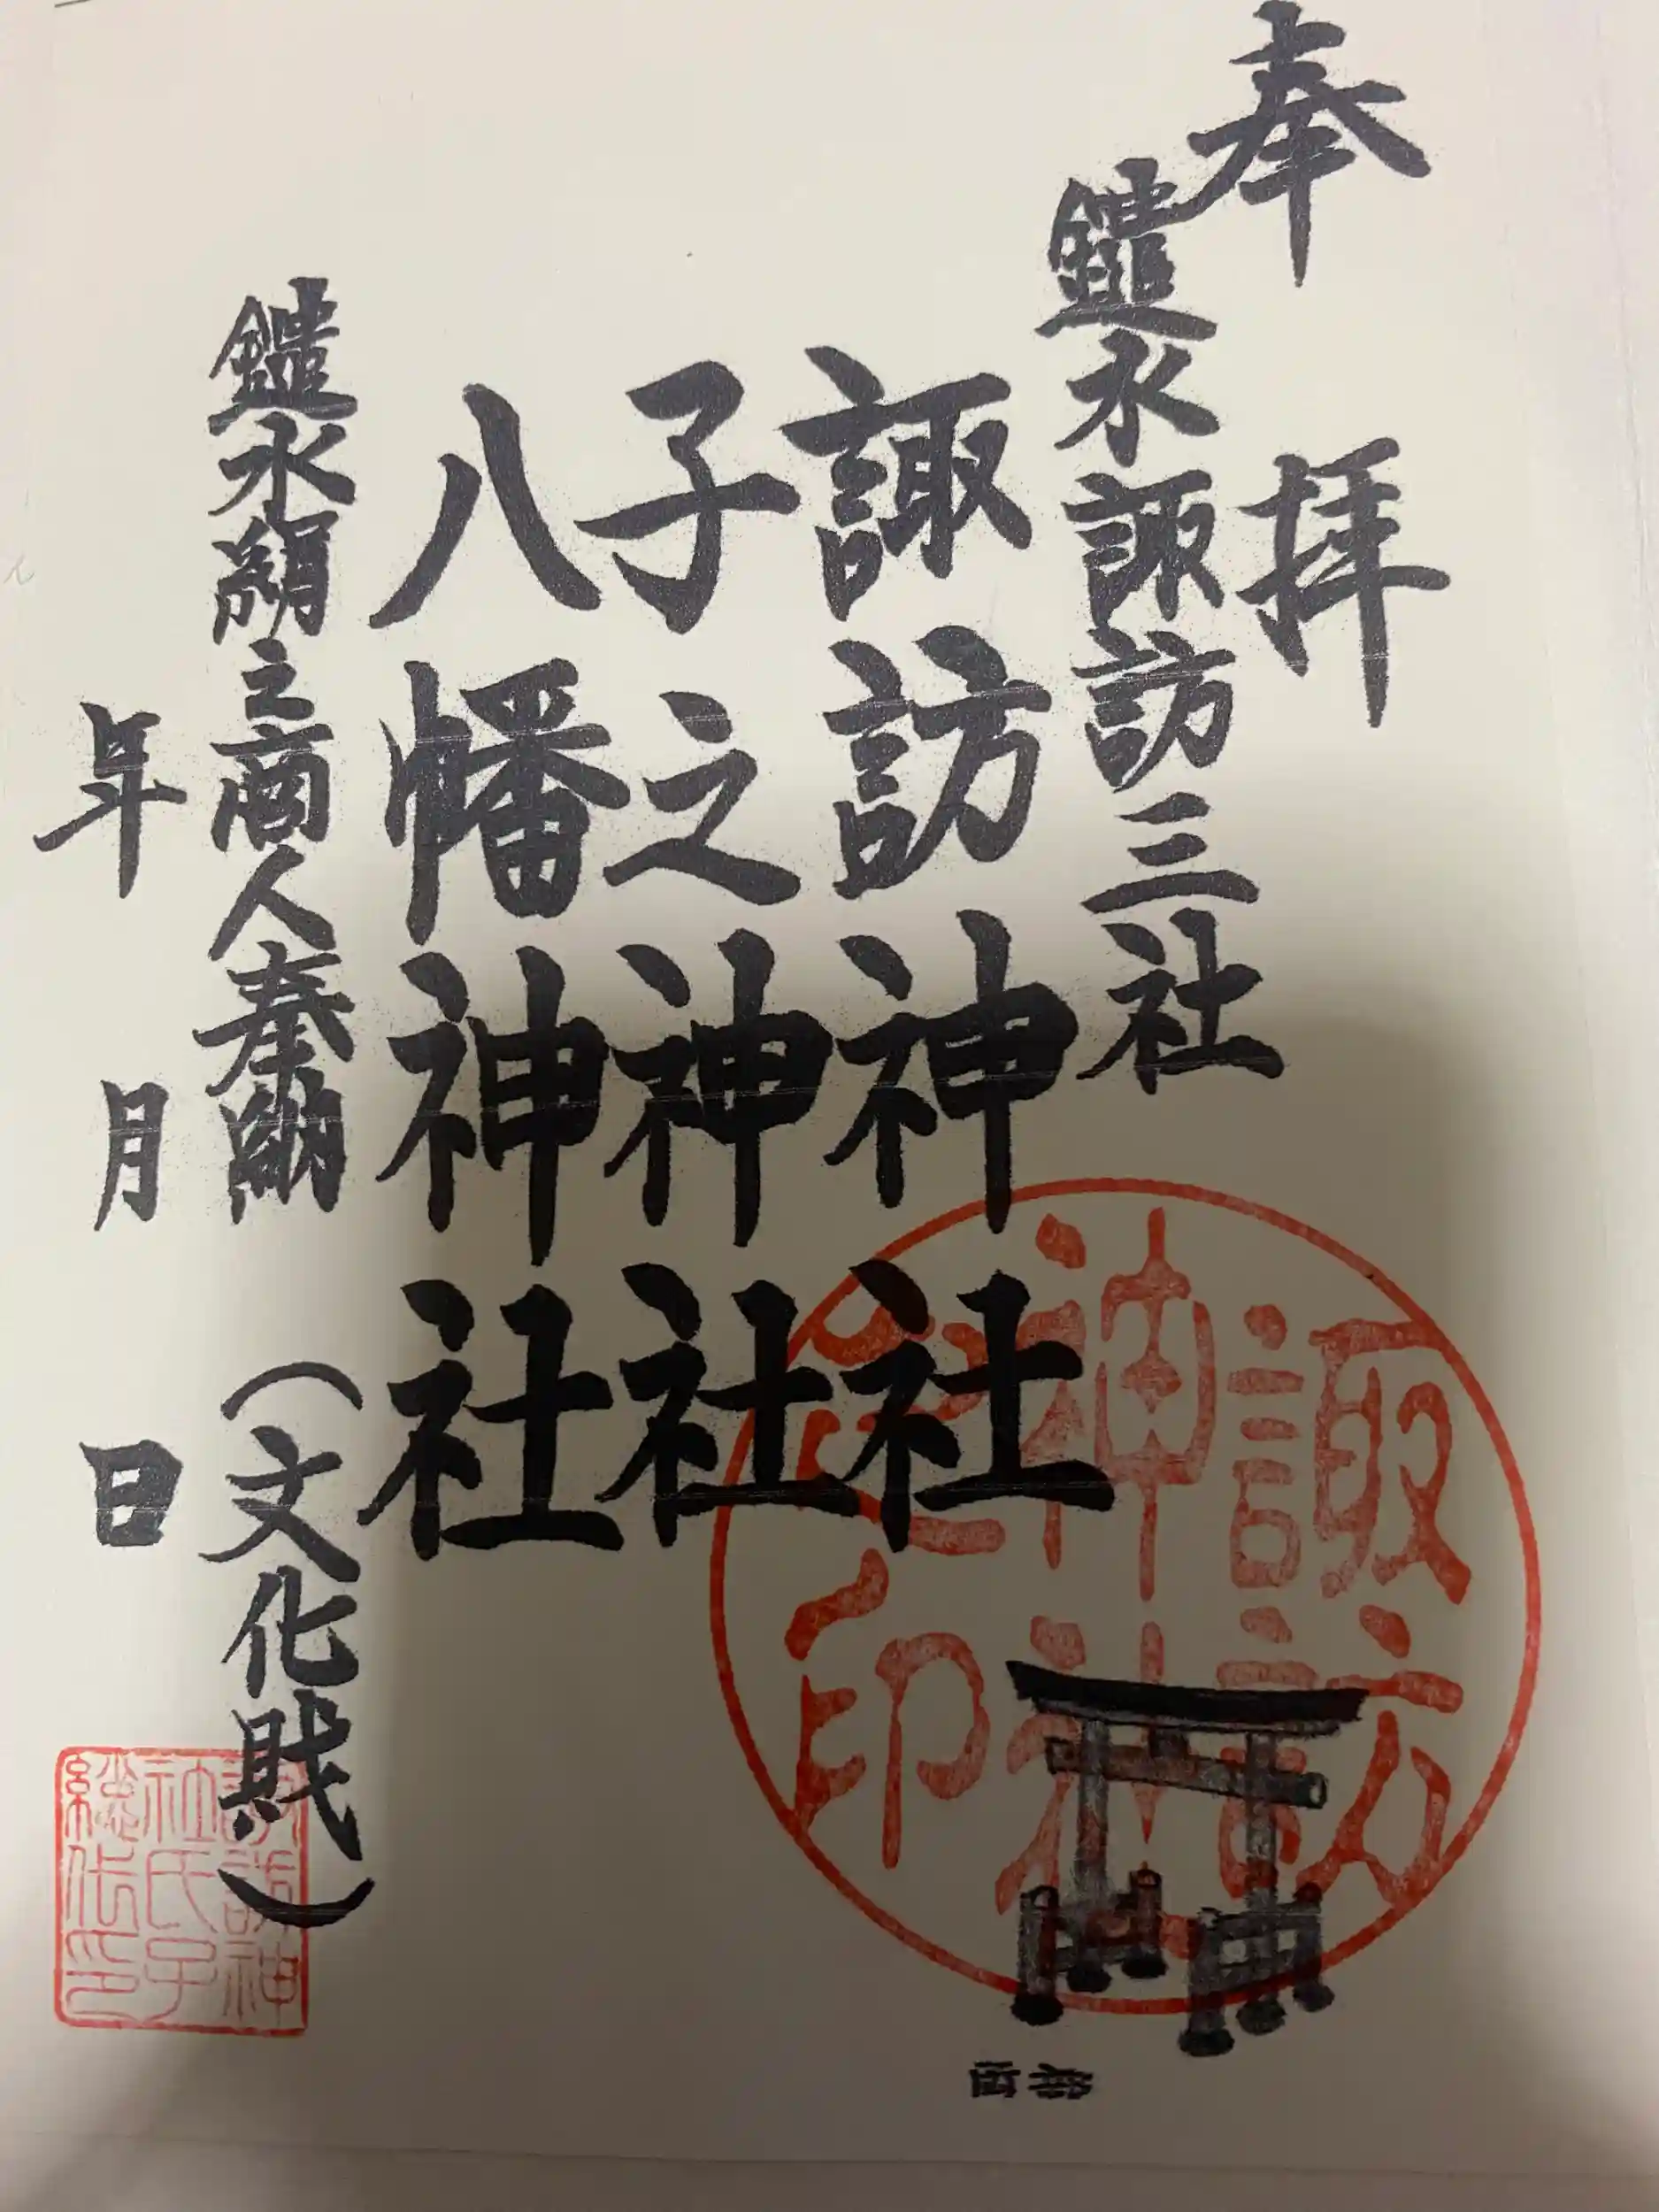 奉拝
鑓水諏訪三社
諏訪神社
子之神神社
八幡神社
鑓水絹之商人奉納（文化財）
年月日
諏訪
神社
印
諏訪神
社氏子
総代印